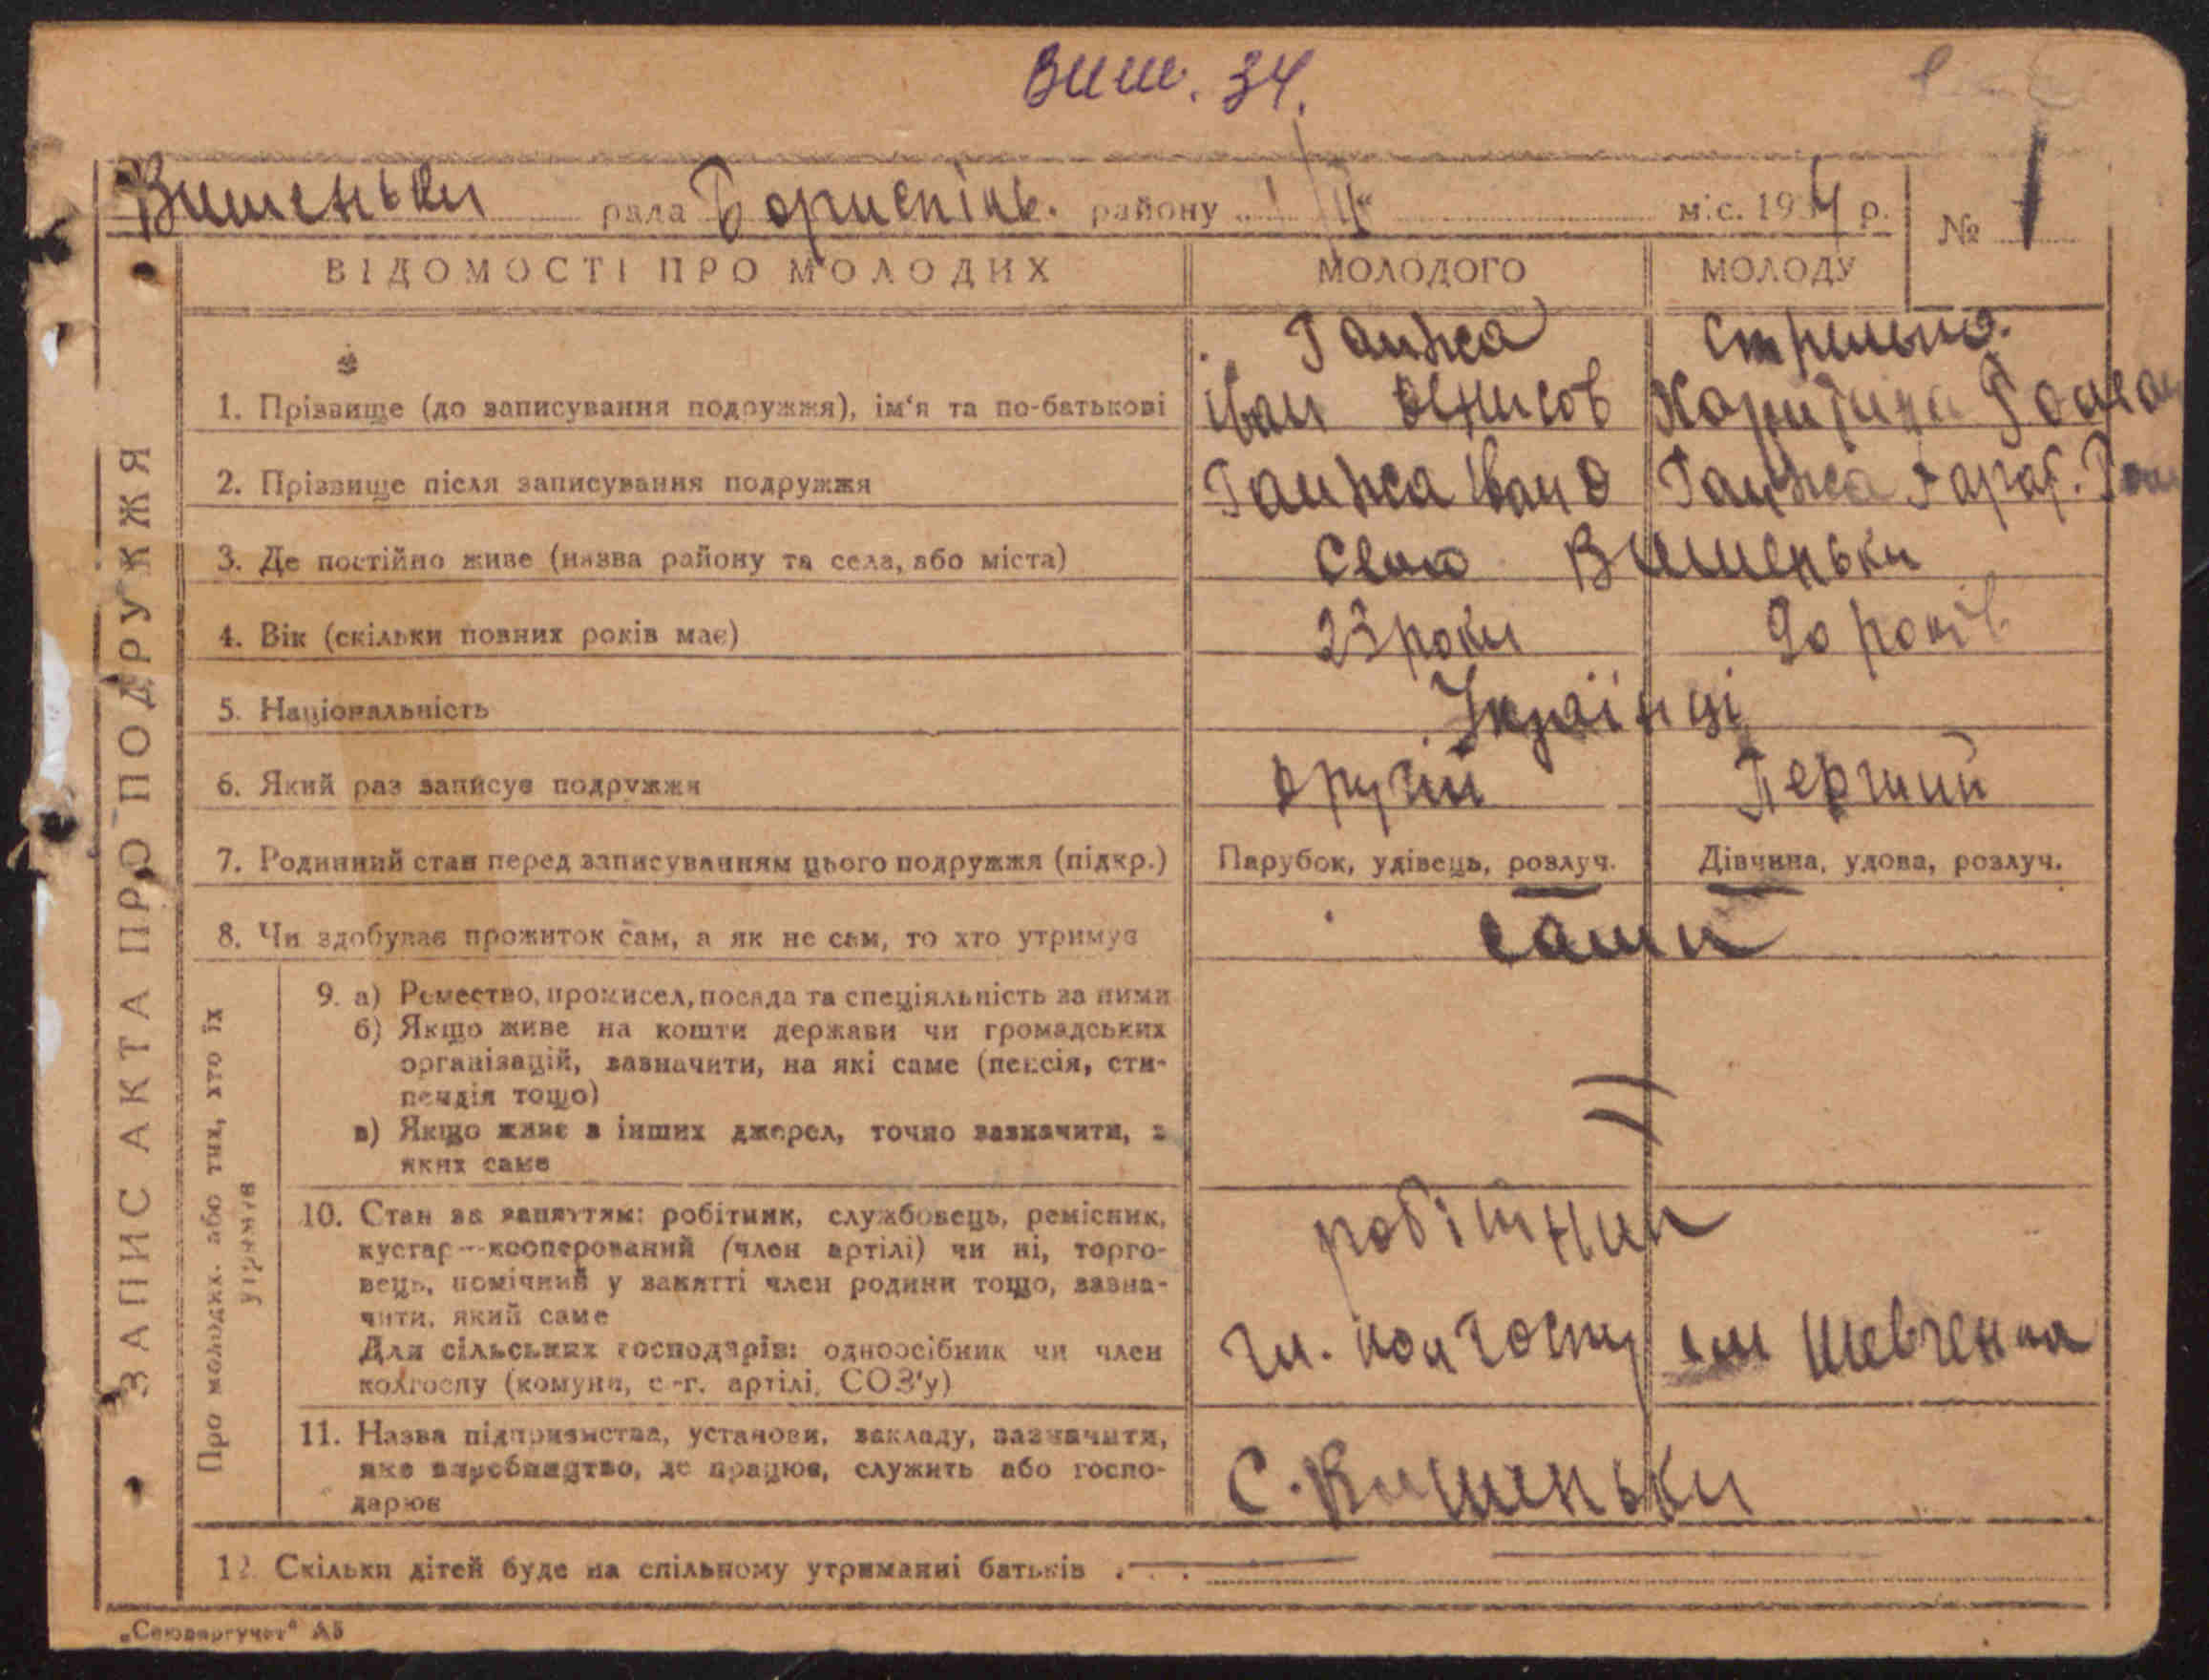 Виш. 34.
Вишеньки рада Бориспіль. району мiс. 1934 р. № 1
ВІДОМОСТІ ПРО МОЛОДИХ МОЛОДОГО МОЛОДУ
Ганжа
1. Прізвище (до записування подружжя), ім'я та по-батькові Іван Денисов
2. Прізвище після записування подружжя Ганжа Іван Д Ганжа
3. Де постійно живе (назва району та села, або міста) Село Вишеньки
4. Вік (скільки повних років має) 23 роки 20 років
5. Національність Українці
6. Який раз записує подружжя Другий Перший
7. Родинний стан перед записуванням цього подружжя (підкр.) Парубок, удівець, розлуч. Дівчина, удова, розлуч.
8. Чи здобуває прожиток сам, а як не сам, то хто утримує сами
9. а) Ремество, промисел, посада та спеціяльність за ними
б) Якщо живе на кошти держави чи громадських
організацій, зазначити, на які саме (пенсія, сти-
пендія тощо)
в) Якщо живе з інших джерел, точно зазначити, з
яких саме
10. Стан за заняттям: робітник, службовець, ремісник,
кустар—кооперований (член артілі) чи ні, торго-
вець, помічний у занятті член родини тощо, зазна-
чити, який саме
робітник
Для сільських господарів: одноосібник чи член
колгоспу (комуни, с.-г. артілі, СОЗ'у)
чл. колгоспу ім Шевченка
11. Назва підприємства, установи, закладу, зазначити,
яке виробництво, де працює, служить або госпо-
дарює
С. Вишеньки
12. Скільки дітей буде на спільному утриманні батьків
„Союзоргучет" А5
ЗАПИС АКТА ПРО ПОДРУЖЖЯ
Про молодих. або тих, хто їх
утримує